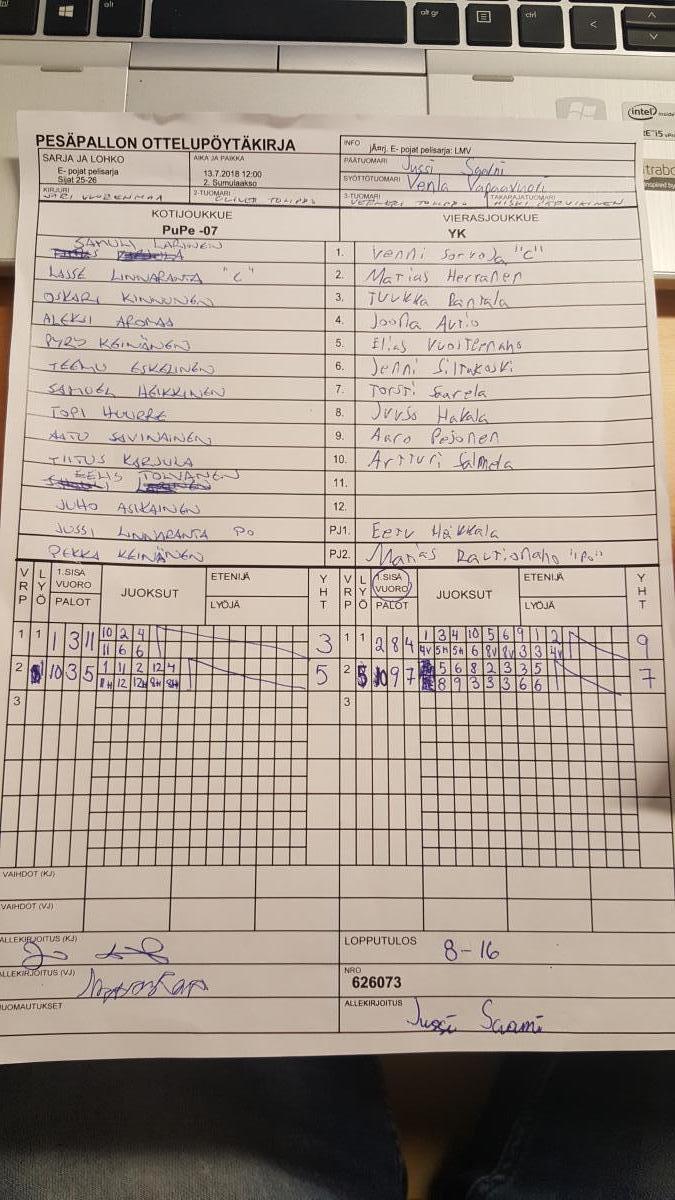 alt
alt gr
ctrl
<
intel
inside
PESÄPALLON OTTELUPÖYTÄKIRJA
SARJA JA LOHKO
E- pojat pelisarja
Sijat 25-26
AIKA JA PAIKKA
13.7.2018 12:00
2. Sumulaakso
INFO
jÄnrj. E- pojat pelisarja: LMV
PÄÄTUOMARI Jussi
SYÖTTÖTUOMARI Venla
KIRJURI
2-TUOMARI
3-TUOMARI
TAKARAJATUOMARI
KOTIJOUKKUE
PuPe -07
VIERASJOUKKUE
YK
SAMULI LARINEN 1. Venni Sorvola "C"
LASSE LINNARANTA "C" 2. Matias Herranen
OSKARI KINNUNEN 3. Tuukka Rantala
ALEKSI AROMAA 4. Joona Autio
PYRY KEINÄNEN 5. Elias
TEEMU ESKELINEN 6. Jenni Siltakoski
SAMUEL HEIKKINEN 7. Torsti Saarela
TOPI HUURRE 8. Juuso Hakala
AATU SAVINAINEN 9. Aaro Pejonen
TIITUS KARJULA 10. Artturi Salmela
EELIS TOLVANEN 11.
JUHO ASIKAINEN 12.
JUSSI LINNARANTA PO PJ1. Eeru Häkkälä
PEKKA KEINÄNEN PJ2. Rautionaho "Po"
VRP LYÖ 1.SISÄ VUORO PALOT JUOKSUT ETENIJÄ LYÖJÄ YHT VRP LYÖ 1.SISÄ VUORO PALOT JUOKSUT ETENIJÄ LYÖJÄ YHT
1 1 1 3 11 10 2 4 3 1 1 2 8 4 1 3 4 10 5 6 9 1 2 9
11 6 6 4V 5H 5H 6 8V 8V 3 3 4V
2 10 3 5 1 11 2 12 4 5 2 9 7 5 6 8 2 3 3 5 7
8H 12 12H 8H 8H 8 9 3 3 3 6 6
3 3
VAIHDOT (KJ)
VAIHDOT (VJ)
ALLEKIRJOITUS (KJ)
LOPPUTULOS 8-16
ALLEKIRJOITUS (VJ)
NRO
626073
HUOMAUTUKSET
ALLEKIRJOITUS Jussi